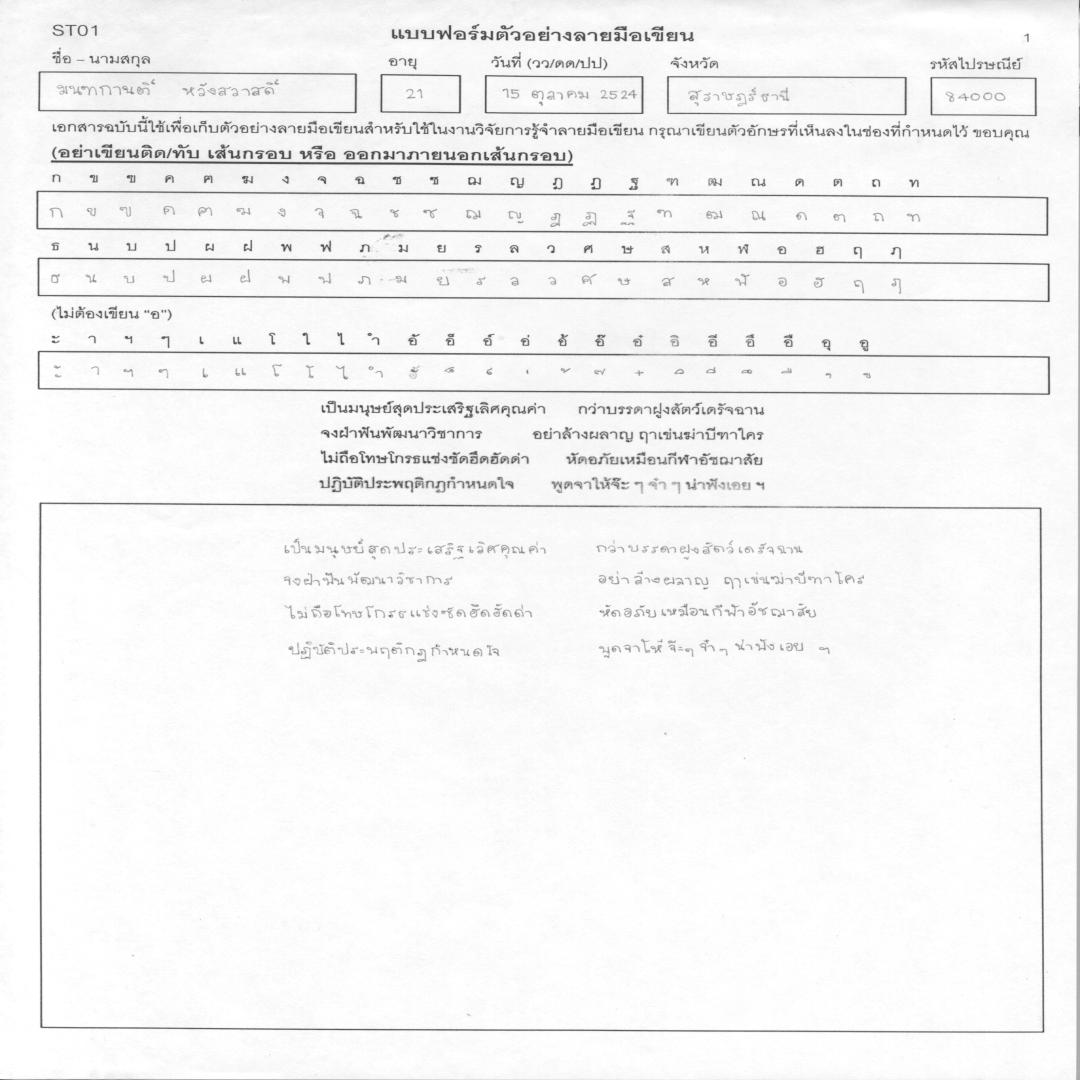 ST01 แบบฟอร์มตัวอย่างลายมือเขียน 1
ชื่อ – นามสกุล อายุ วันที่ (วว/ดด/ปป) จังหวัด รหัสไปรษณีย์
หวังสวาสดิ์ 21 15 ตุลาคม 2524 สุราษฎร์ธานี 84000
เอกสารฉบับนี้ใช้เพื่อเก็บตัวอย่างลายมือเขียนสำหรับใช้ในงานวิจัยการรู้จำลายมือเขียน กรุณาเขียนตัวอักษรที่เห็นลงในช่องที่กำหนดไว้ ขอบคุณ
(อย่าเขียนติด/ทับ เส้นกรอบ หรือ ออกมาภายนอกเส้นกรอบ)
ก ข ฃ ค ฅ ฆ ง จ ฉ ช ซ ฌ ญ ฎ ฏ ฐ ฑ ฒ ณ ด ต ถ ท
ก ข ฃ ค ฅ ฆ ง จ ฉ ช ซ ฌ ญ ฎ ฏ ฐ ฑ ฒ ณ ด ต ถ ท
ธ น บ ป ผ ฝ พ ฟ ภ ม ย ร ล ว ศ ษ ส ห ฬ อ ฮ ฤ ฦ
ธ น บ ป ผ ฝ พ ฟ ภ ม ย ร ล ว ศ ษ ส ห ฬ อ ฮ ฤ ฦ
(ไม่ต้องเขียน “อ”)
ะ า ฯ ๆ เ แ โ ใ ไ ำ อั อ็ อ์ อ่ อ้ อ๊ อ๋ อิ อี อึ อื อุ อู
ะ า ฯ ๆ เ แ โ ใ ไ ำ ั ็ ์ ่ ้ ๊ ๋ ิ ี ึ ื ุ ู
เป็นมนุษย์สุดประเสริฐเลิศคุณค่า กว่าบรรดาฝูงสัตว์เดรัจฉาน
จงฝ่าฟันพัฒนาวิชาการ อย่าล้างผลาญ ฤาเข่นฆ่าบีฑาใคร
ไม่ถือโทษโกรธแช่งซัดฮึดฮัดด่า หัดอภัยเหมือนกีฬาอัชฌาสัย
ปฏิบัติประพฤติกฎกำหนดใจ พูดจาให้จ๊ะ ๆ จ๋า ๆ น่าฟังเอย ฯ
เป็นมนุษย์สุดประเสริฐเลิศคุณค่า กว่าบรรดาฝูงสัตว์เดรัจฉาน
จงฝ่าฟันพัฒนาวิชาการ อย่าล้างผลาญ ฤาเข่นฆ่าบีฑาใคร
ไม่ถือโทษโกรธแช่งซัดฮึดฮัดด่า หัดอภัยเหมือนกีฬาอัชฌาสัย
ปฏิบัติประพฤติกฎกำหนดใจ พูดจาให้จ๊ะๆ จ๋าๆ น่าฟังเอย ฯ